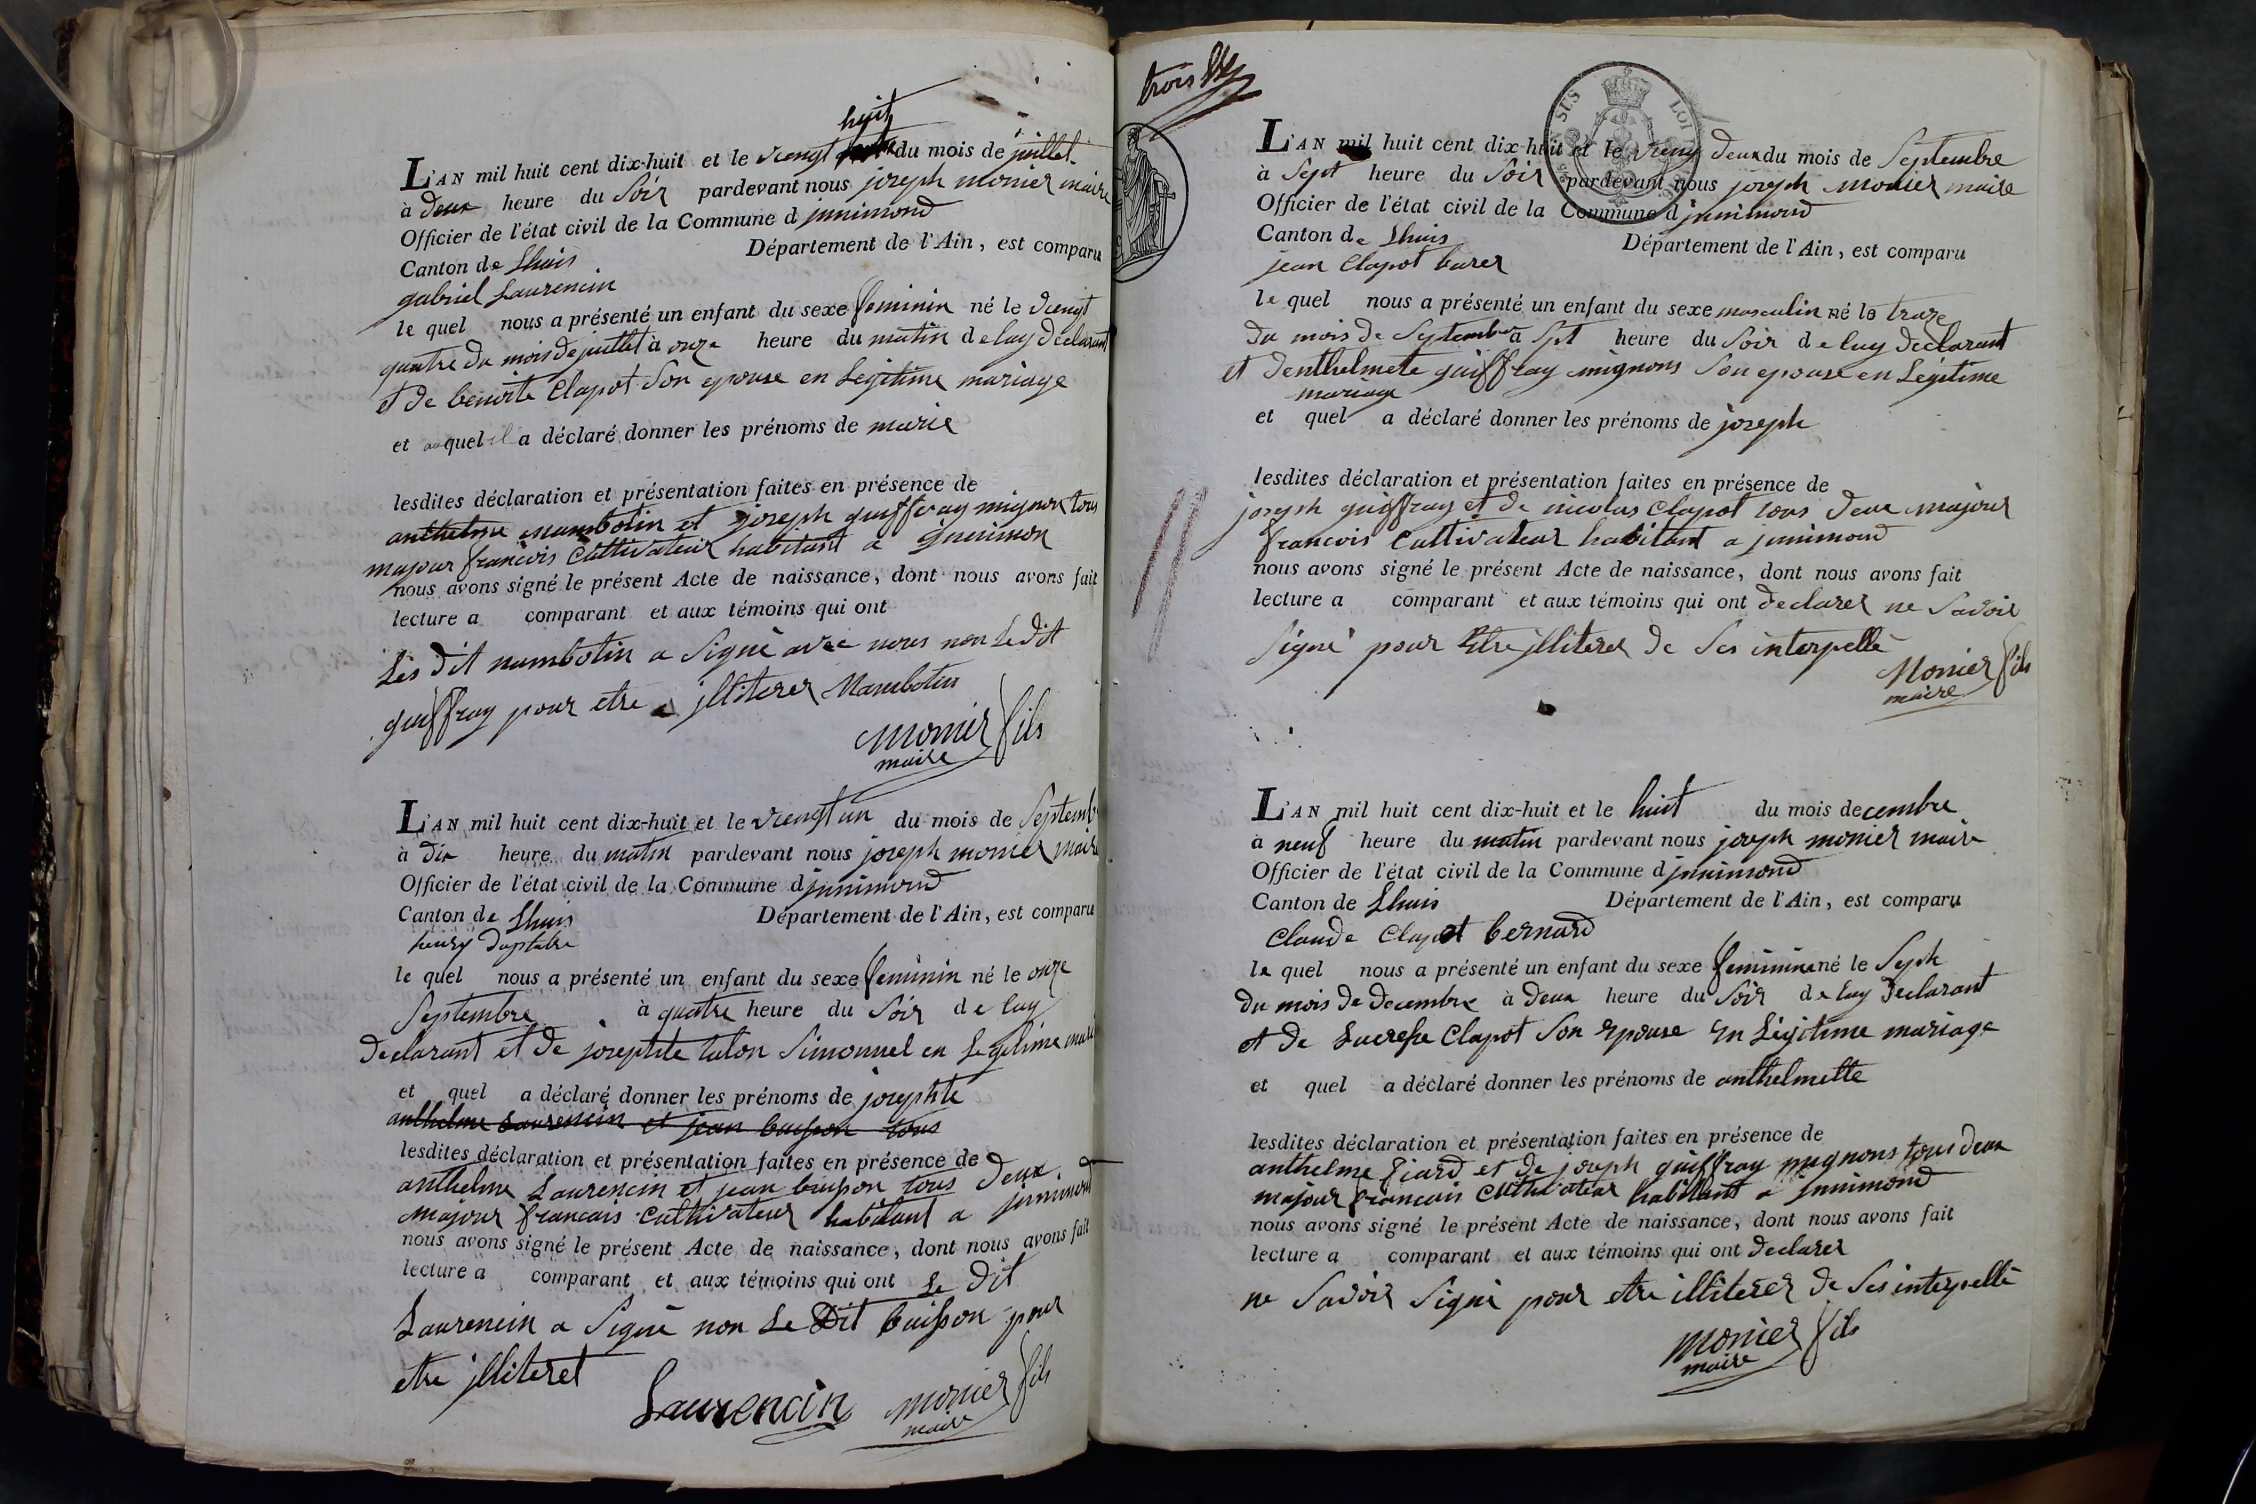 huit
L'AN mil huit cent dix-huit et le vengt du mois de juillet
à deux heure du Soir pardevant nous joseph monier maire
Officier de l'état civil de la Commune d jnnimond
Canton de Lhuis Département de l'Ain, est comparu
gabriel Laurencin
le quel nous a présenté un enfant du sexe feminin né le vengt
quatre du mois de juillet à onze heure du matin de luy declarant
et de benoite Clapot Son epouse en Legitime mariage
et auquel il a déclaré donner les prénoms de marie
lesdites déclaration et présentation faites en présence de
anthelme Mambotin et joseph guiffray mignon tous
majour francois Cultivateur habitant a jnnimon
nous avons signé le présent Acte de naissance, dont nous avons fait
lecture a comparant et aux témoins qui ont
Les dit mambotin a Signé avec nous non Le dit
guiffray pour etre jlliterer Mambotin
Monier fils
maire
L'AN mil huit cent dix-huit et le vengt un du mois de Septemb
à dix heure du matin pardevant nous joseph monier maire
Officier de l'état civil de la Commune d jnnimond
Canton de Lhuis Département de l'Ain, est comparu
henry
le quel nous a présenté un enfant du sexe feminin né le onze
Septembre à quatre heure du Soir de luy
declarant et de josephte talon Simonnel en Legitime mari
et quel a déclaré donner les prénoms de josephte
anthelme Laurencin et jean buisson tous
lesdites déclaration et présentation faites en présence de
anthelme Laurencin et jean buisson tous deux
majour francais Cultivateur habitant a jnnimond
nous avons signé le présent Acte de naissance, dont nous avons fait
lecture a comparant et aux témoins qui ont Le dit
Laurencin a Signé non Le Dit buisson pour
etre jlliteret
Laurencin monier fils
maire
trois
L'AN mil huit cent dix-huit et le vengt deux du mois de Septembre
à Sept heure du Soir pardevant nous joseph monier maire
Officier de l'état civil de la Commune d jnnimond
Canton de Lhuis Département de l'Ain, est comparu
jean Clapot burer
le quel nous a présenté un enfant du sexe masculin né le traze
du mois de Septembre à Sept heure du Soir de luy declarant
et Denthelmete guiffray mignons Son epouse en Legitime
mariage
et quel a déclaré donner les prénoms de joseph
lesdites déclaration et présentation faites en présence de
joseph guiffray et de nicolas Clapot tous deux majour
francois Cultivateur habitant a jnnimond
nous avons signé le présent Acte de naissance, dont nous avons fait
lecture a comparant et aux témoins qui ont declarer ne Savoir
Signé pour Etre jlliterer de Ses interpellé
Monier fils
maire
L'AN mil huit cent dix-huit et le huit du mois decembre
à neuf heure du matin pardevant nous joseph monier maire
Officier de l'état civil de la Commune d jnnimond
Canton de Lhuis Département de l'Ain, est comparu
Claude Clapot bernard
le quel nous a présenté un enfant du sexe feminine né le Seph
du mois de decembre à deux heure du Soir de luy declarant
et de Lucresse Clapot Son epouse En Légitime mariage
et quel a déclaré donner les prénoms de anthelmette
lesdites déclaration et présentation faites en présence de
anthelme fiard et de joseph guiffray mignons tous deux
majour francais Cultivateur habitant a jnnimond
nous avons signé le présent Acte de naissance, dont nous avons fait
lecture a comparant et aux témoins qui ont declarer
ne Savoir Signé pour etre illiterer de Ses interpellé
Monier fils
maire